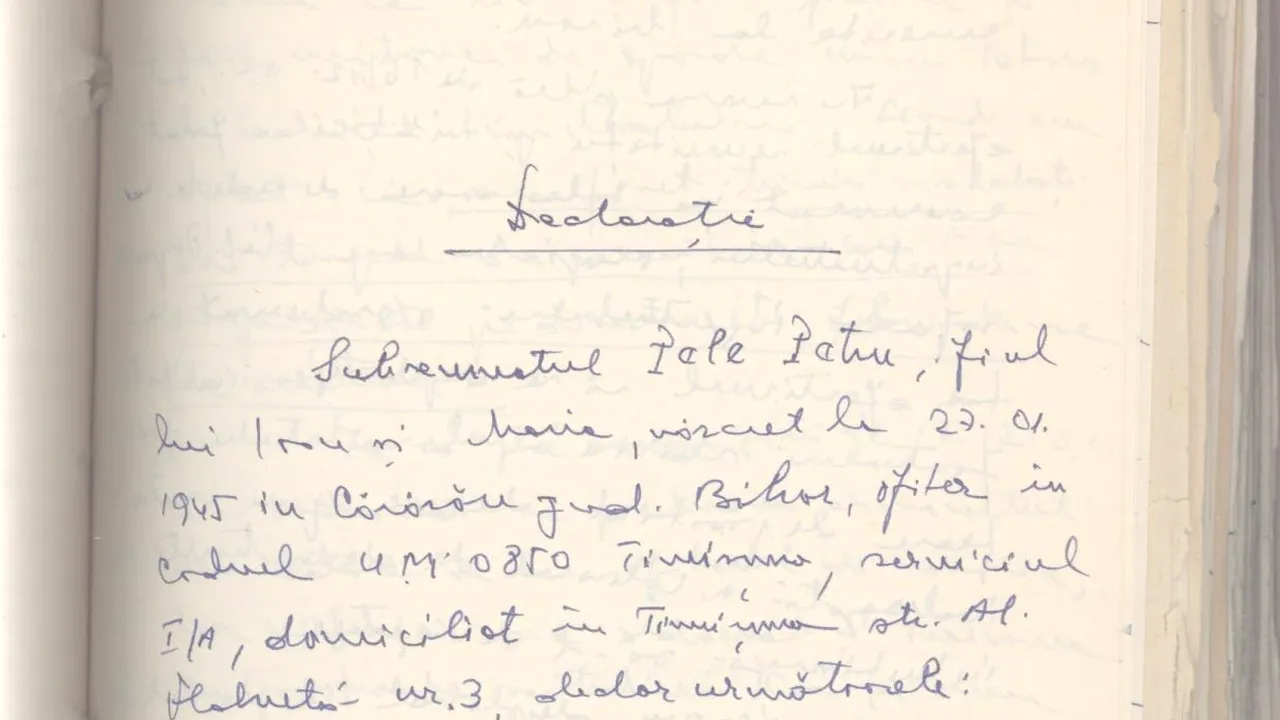 Declarație
Subsemnatul Pele Petru, fiul
lui Ioan și Maria, născut la 27. 01.
1945 în jud. Bihor, ofițer în
cadrul U.M. 0850 Timișoara, serviciul
I/A, domiciliat în Timișoara str. Al.
nr. 3, declar următoarele: